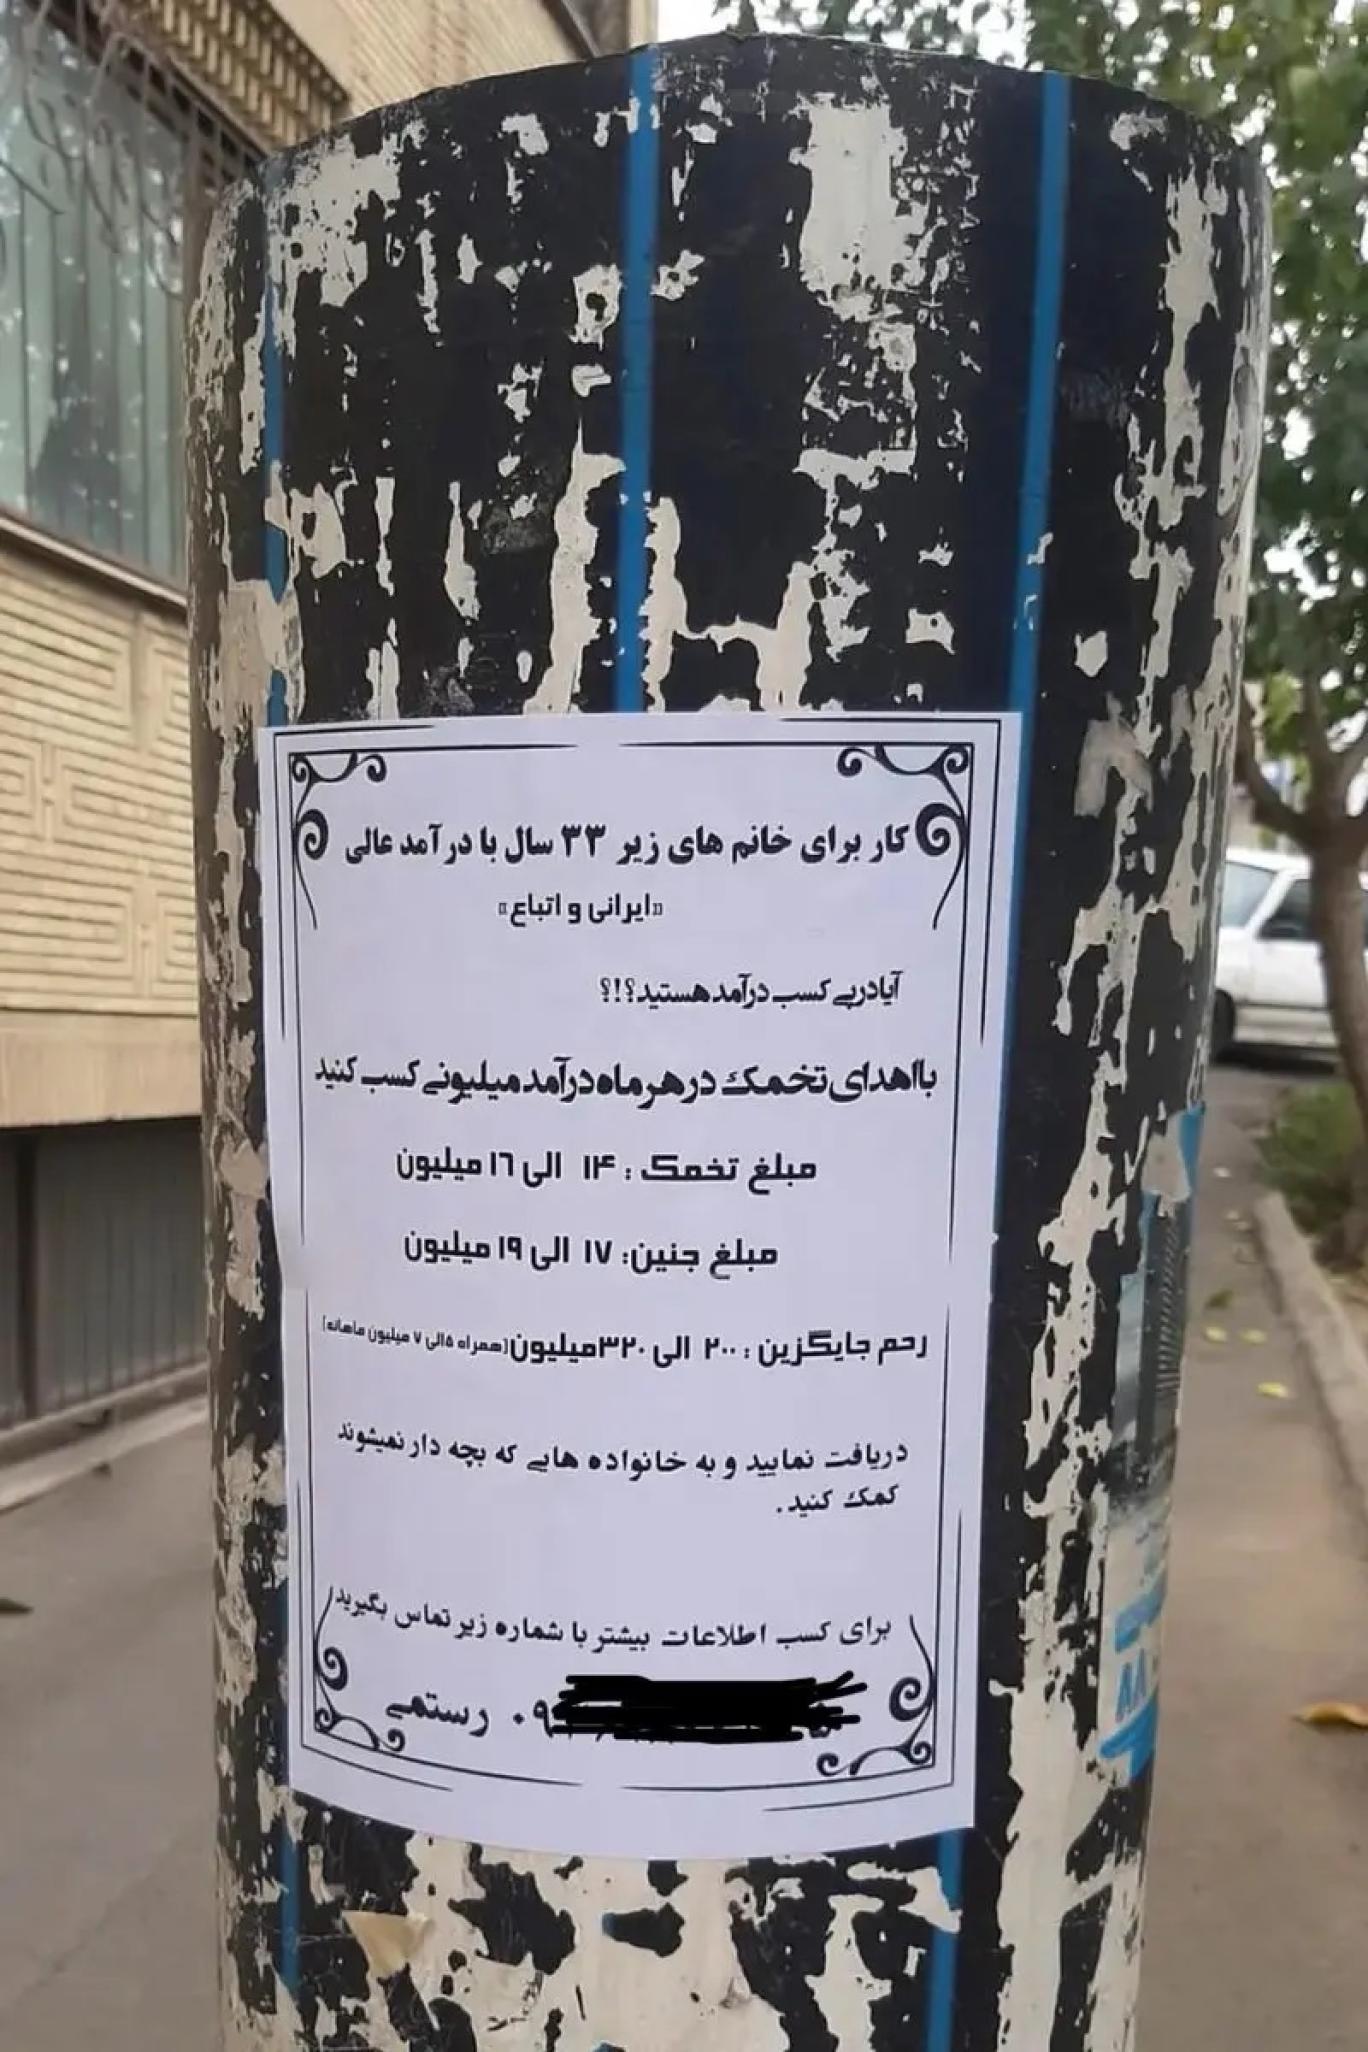 کار برای خانم های زیر ۳۳ سال با درآمد عالی
«ایرانی و اتباع»
آیا در پی کسب درآمد هستید؟!؟
با اهدای تخمک در هر ماه درآمد میلیونی کسب کنید
مبلغ تخمک : ۱۴ الی ۱۶ میلیون
مبلغ جنین: ۱۷ الی ۱۹ میلیون
رحم جایگزین : ۲۰۰ الی ۳۲۰ میلیون (همراه ۵ الی ۷ میلیون ماهانه)
دریافت نمایید و به خانواده هایی که بچه دار نمیشوند
کمک کنید .
برای کسب اطلاعات بیشتر با شماره زیر تماس بگیرید
۰۹ رستمی
۸۸